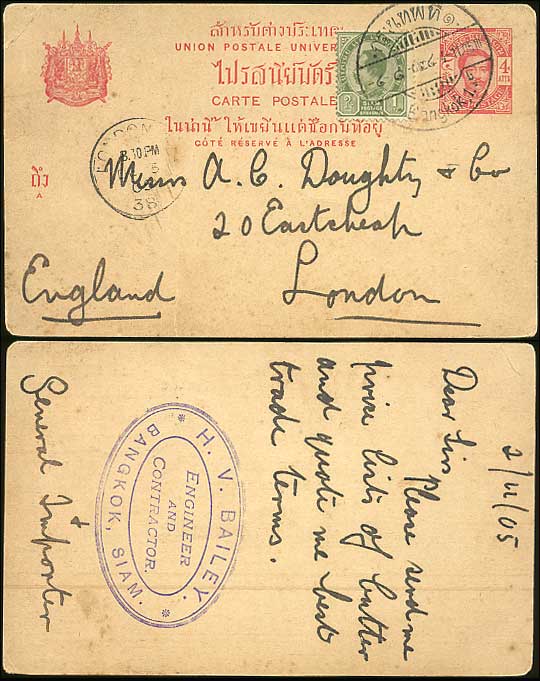 สำหรับต่างประเทศ
UNION POSTALE UNIVER
ไปรสนียบัตร
CARTE POSTALE
ในน่านี้ ให้เขียนแต่ชื่อกับที่อยู่
CÔTÉ RÉSERVÉ À L'ADRESSE
4
ATTS
1
SIAM
Bangkok 1.
LONDON
8.10PM
38
ถึง
A
Messrs A. C. Doughty & Co
20 Eastcheap
London
England
2/11/05
Dear Sirs
Please send me
price lists of butter
and quote me best
trade terms.
H. V. BAILEY.
ENGINEER
AND
CONTRACTOR.
BANGKOK, SIAM.
+
General Importer